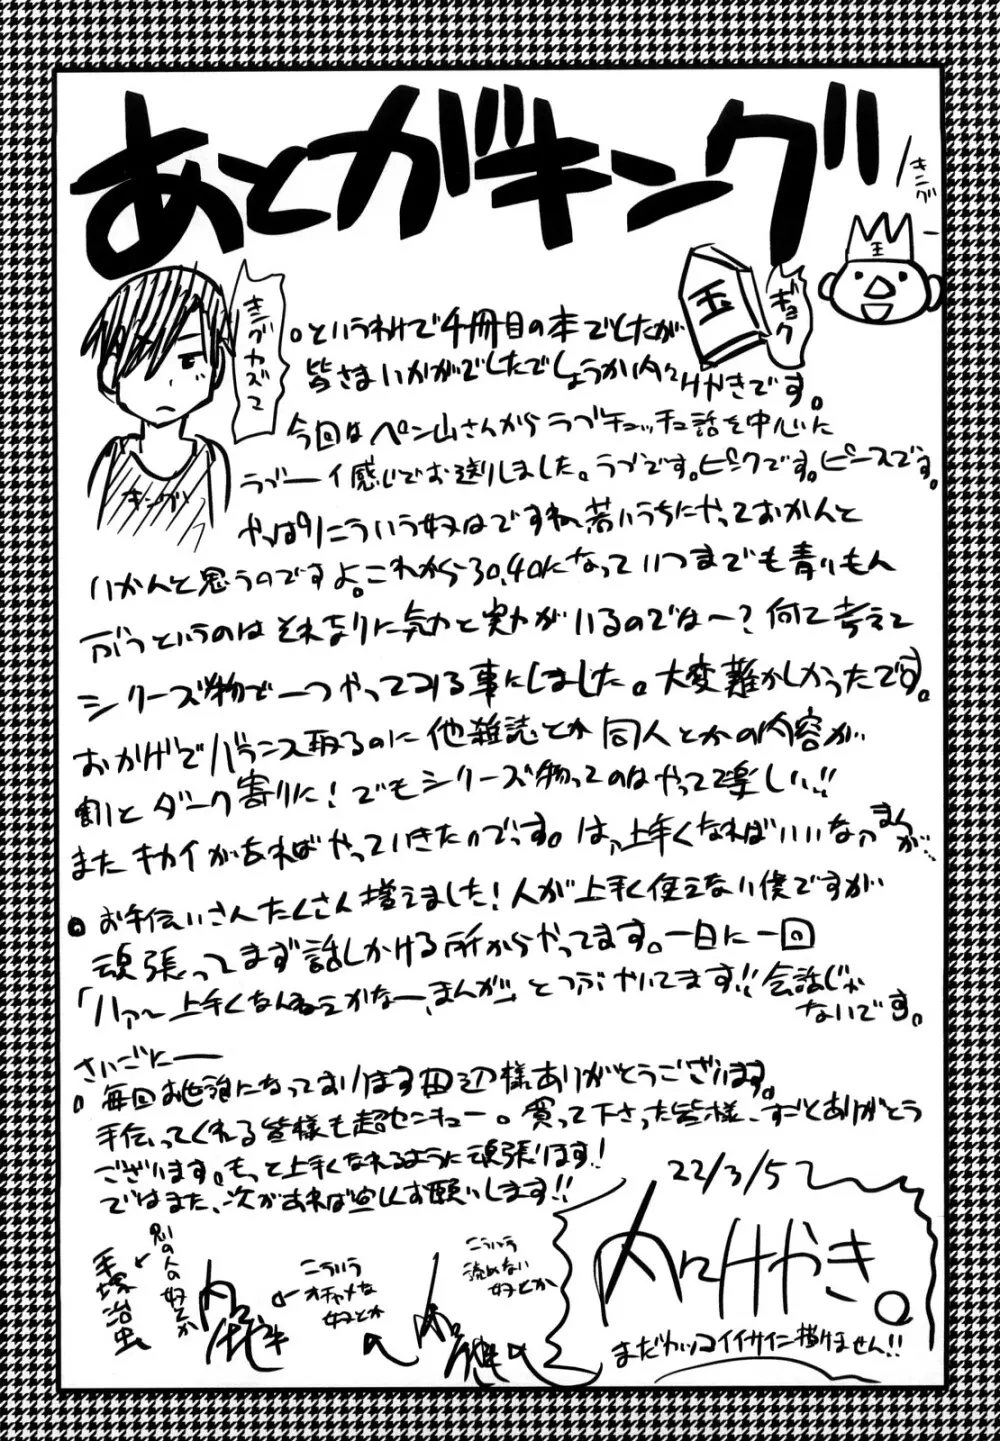 あとがキング
キング
玉
ギョク
王
キングカズで
キング
。というわけで4冊目の本でしたが
皆さまいかがでしたでしょうか内々けやきです。
今回はペン山さんからラブチュッチュ話を中心に
ラブーイ感じでお送りしました。ラブです。ピンクです。ピースです。
やっぱりこういう奴はですね若いうちにやっておかんと
いかんと思うのですよ。これから30,40になっていつまでも青いもん
ぶつというのはそれなりに気力と実力がいるのでは〜?何て考えて
シリーズ物で一つやってみる事にしました。大変難かしかったです。
おかげでバランス取るのに他雑誌とか同人とかの内容が
割とダーク寄りに!でもシリーズ物ってのはやってて楽しい!!
またキカイがあればやっていきたいのです。はァ上手くなればいいなァまんが…
。お手伝いさんたくさん増えました!人が上手く使えない僕ですが
頑張ってまず話しかける所からやってます。一日に一回
「ハァ〜上手くなんねぇかなー、まんが」とつぶやいてます!!会話じゃ
ないです。
さいごにー
。毎回お世話になっております田辺様ありがとうございます。
手伝ってくれる皆様も超センキュー。買って下さった皆様、すごとありがとう
ございます。もっと上手くなれるように頑張ります!
ではまた、次があれば宜しくお願いします!!
22/3/5
内々けやき。
まだカッコイイサイン描けません!!
こういう
読めない
奴とか
こういう
オチャメな
奴とか
別の人の奴とか
手塚治虫